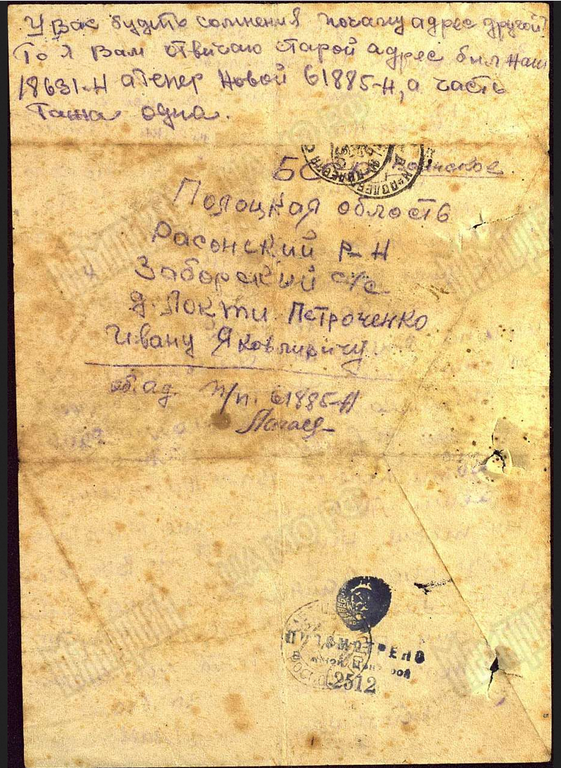 У Вас будить сомнения почаму адрес другой?
То я Вам отвичаю старой адрес был наш
18631-Н атепер Новой 61885-Н, а часть
Таша одна.
воинское
Полоцкая область
Расонский Р-Н
Заборский с/с
д. Локти Петроченко
Ивану Яковлиричу
об. ад. п/п. 61885-Н
ПРОСМОТРЕНО
Военной Цензурой
12512